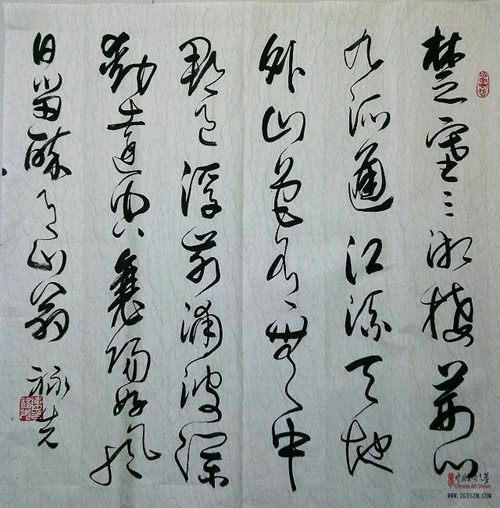 楚塞三湘接荆门
九派通江流天地
外山色有無中
郡邑浮前浦波澜
動遠空襄陽好風
日留醉与山翁
Chinese Art Dream
WWW.ZGYSZM.COM